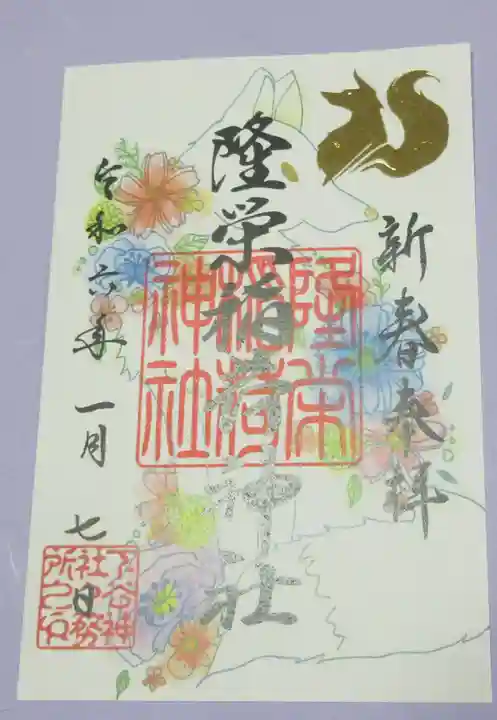 新春奉拝
隆栄稲荷神社
隆栄
稲荷
神社
令和六年一月七日
下谷神
社社務
所之印